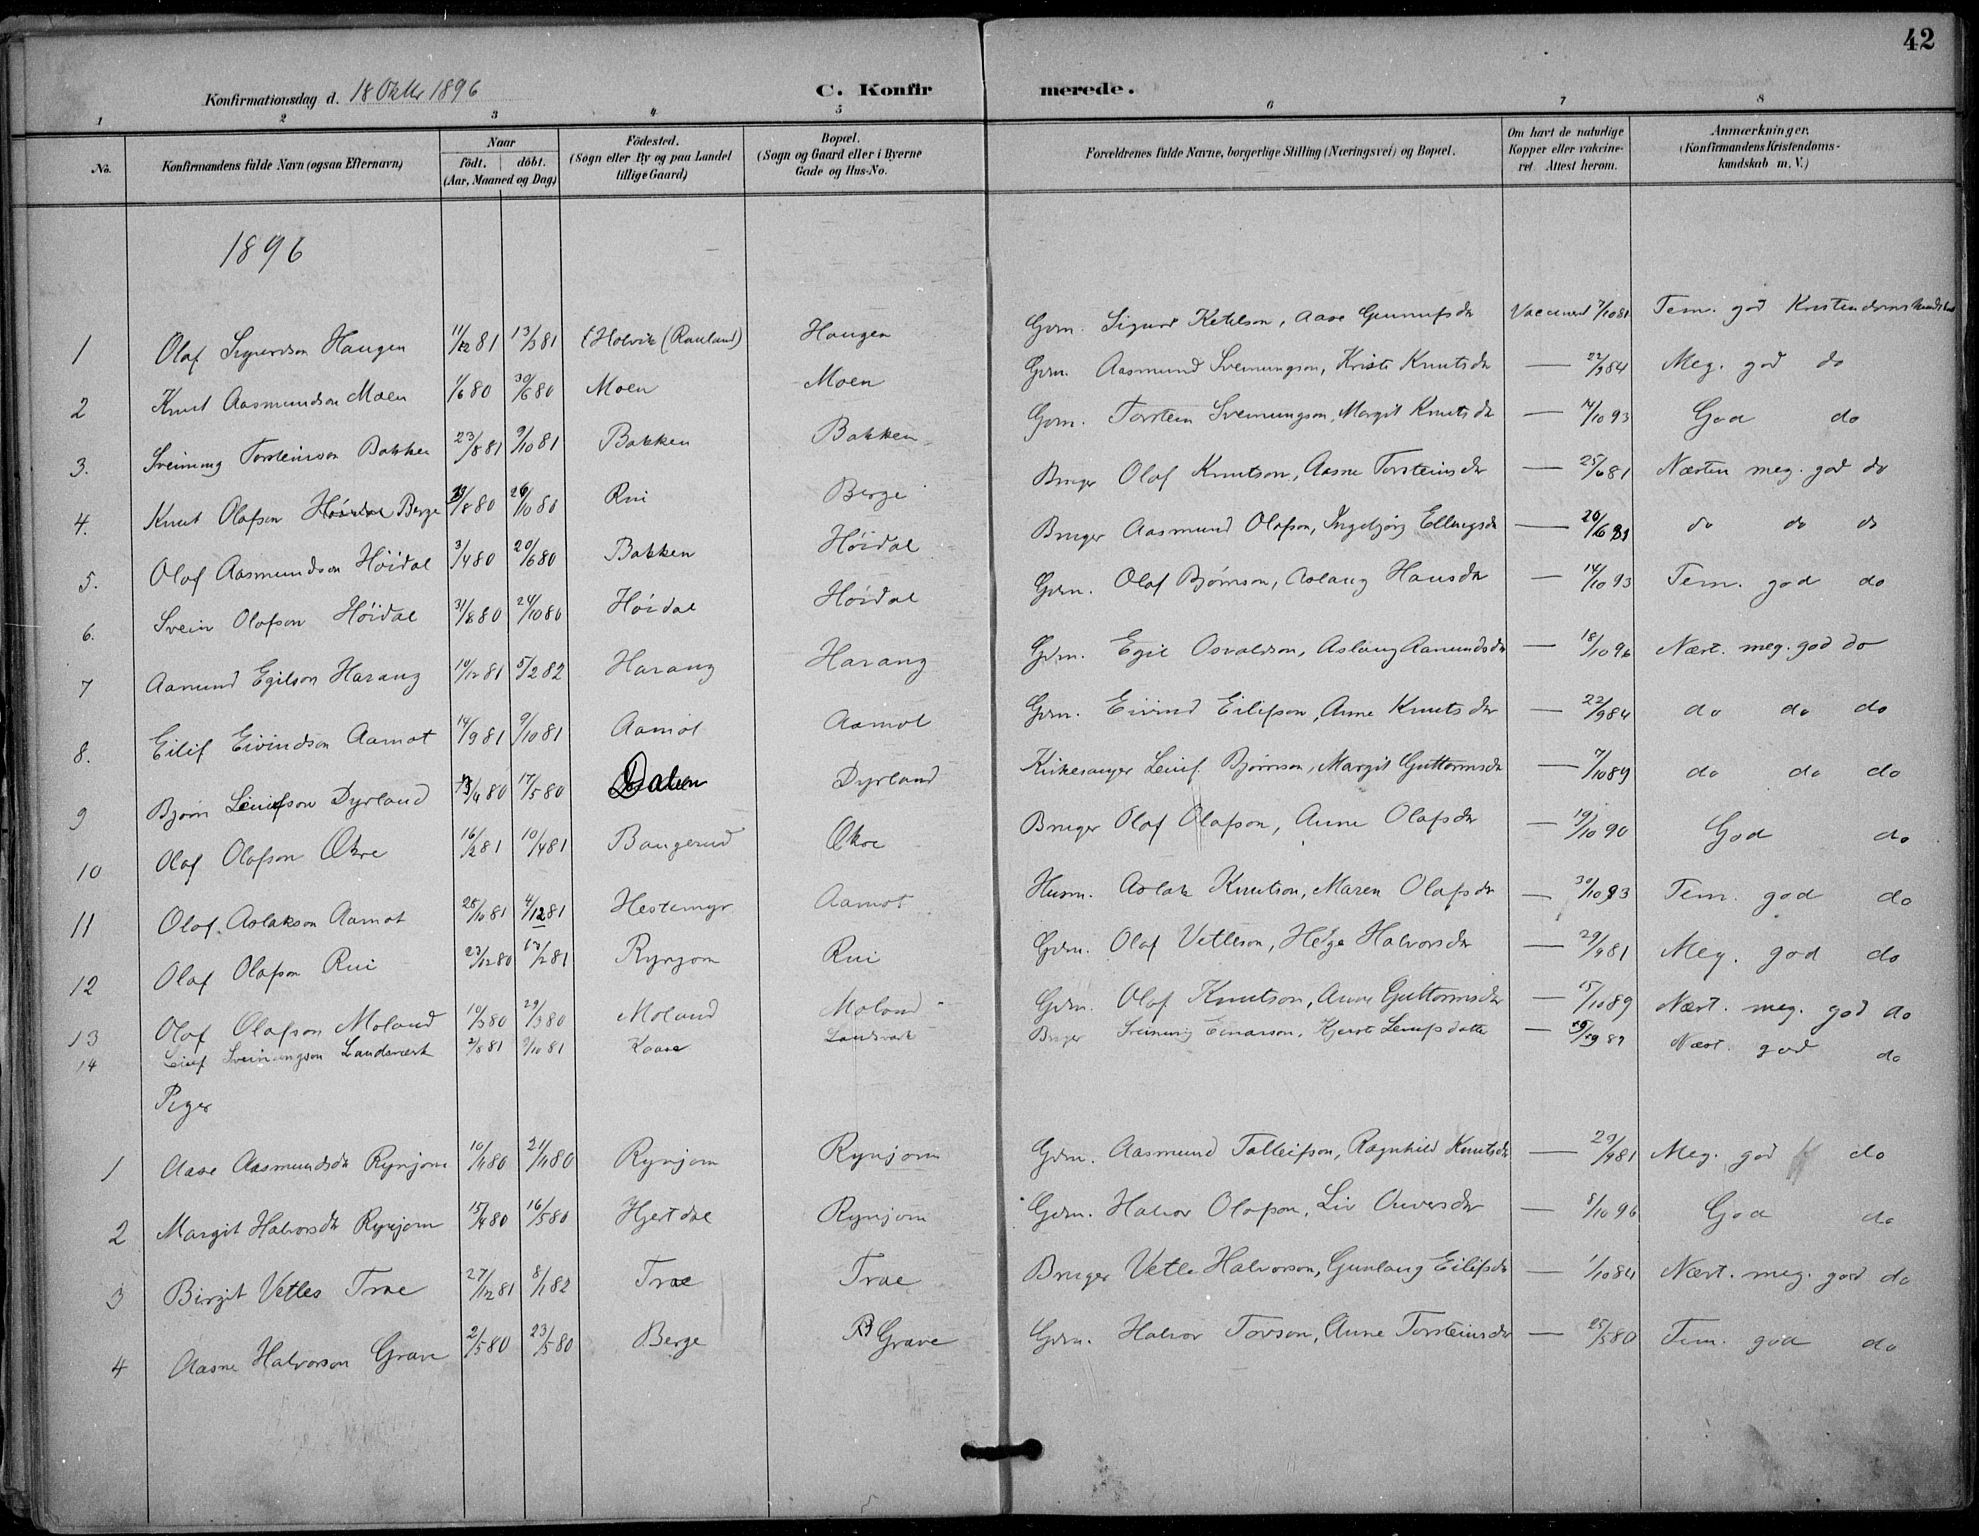 42
Konfirmationsdag d. 18 Oktbr 1896
C. Konfirmerede.
1 2 3 4 5 6 7 8
No.
Konfirmandens fulde Navn (ogsaa Efternavn)
Naar
födt. döbt.
(Aar, Maaned og Dag)
Födested.
(Sogn eller By og paa Landet
tillige Gaard)
Bopæl.
(Sogn og Gaard eller i Byerne
Gade og Hus-No.
Forældrenes fulde Navne, borgerlige Stilling (Næringsvei) og Bopæl.
Om havt de naturlige
Kopper eller vakcine-
ret. Attest herom.
Anmærkninger.
(Konfirmandens Kristendoms-
kundskab m. V.)
1896
1 Olaf Sigurdson Haugen 11/12 81 13/3 81 Holvik (Rauland) Haugen Gdm. Sigurd Ketilson, Aase Gunnufsdr Vaccinert 7/10 81 Tem. god Kristendomskundskab
2 Knut Aasmundson Moen 1/6 80 30/6 80 Moen Moen Gdm. Aasmund Sveinungson, Kristi Knutsdr — 22/9 84 Meg. god do
3. Sveinung Torsteinson Bakken 23/8 81 9/10 81 Bakken Bakken Gdm. Torstein Sveinungson, Margit Knutsdr — 14/10 93 God do
4. Knut Olafson Höidal Berge 29/8 80 26/10 80 Rui Berge Bruger Olaf Knutson, Aasne Torsteinsdr — 25/6 81 Næsten meg. god do
5. Olaf Aasmundson Höidal 3/4 80 20/6 80 Bakken Höidal Bruger Aasmund Olafson, Ingebjörg Ellingsdr — 20/6 81 do do do
6. Svein Olafson Höidal 31/8 80 24/10 80 Höidal Höidal Gdm. Olaf Bjørnson, Aslaug Hansdr — 14/10 93 Tem. god do
7 Aamund Egilson Harang 10/12 81 5/2 82 Harang Harang Gdm. Egil Osvaldson, Aslaug Aamundsdr — 18/10 96 Næst. meg. god do
8. Eilif Eivindson Aamot 14/9 81 9/10 81 Aamot Aamot Gdm. Eivind Eilifson, Anne Knutsdr — 22/9 84 do do do
9 Bjørn Leiufson Dyrland 13/4 80 17/5 80 Dalen Dyrland Kirkesanger Leiuf Bjørnson, Margit Guttormsdr — 7/10 89 do do do
10 Olaf Olafson Økre 16/2 81 10/4 81 Baugerud Økre Bruger Olaf Olafson, Anne Olafsdr — 19/10 90 God do
11 Olaf Aslakson Aamot 25/10 81 4/12 81 Hestemyr Aamot Husm. Aslak Knutson, Maren Olafsdr — 30/10 93 Tem. god do
12 Olaf Olafson Rui 23/12 80 13/2 81 Rynjom Rui Gdm. Olaf Vetleson, Helge Halvorsdr — 29/9 81 Meg. god do
13 Olaf Olafson Moland 10/3 80 29/3 80 Moland Moland Gdm. Olaf Knutson, Anne Guttormsdr — 5/10 89 Næst. meg. god do
14 Leiuf Sveinungson Landsverk 2/8 81 9/10 81 Kaase Landsverk Bruger Sveinung Einarson, Kjersti Leiufsdatter — 29/9 89 Næst. god do
Piger
1 Aase Aasmundsdr Rynjom 10/1 80 21/1 80 Rynjom Rynjom Gdm. Aasmund Talleifson, Ragnhild Knutsdr — 29/9 81 Meg. god do
2 Margit Halvorsdr Rynjom 15/4 80 16/5 80 Hjertdal Rynjom Gdm. Halvor Olafson, Liv Anversdr — 8/10 96 God do
3 Birgit Vetles Trae 27/12 81 8/1 82 Trae Trae Bruger Vetle Halvorson, Gunlaug Eilifsdr — 1/10 84 Næst. meg. god do
4 Aasne Halvorson Grave 2/5 80 23/5 80 Berge Grave Gdm. Halvor Tovson, Anne Torsteinsdr — 25/5 80 Tem. god do